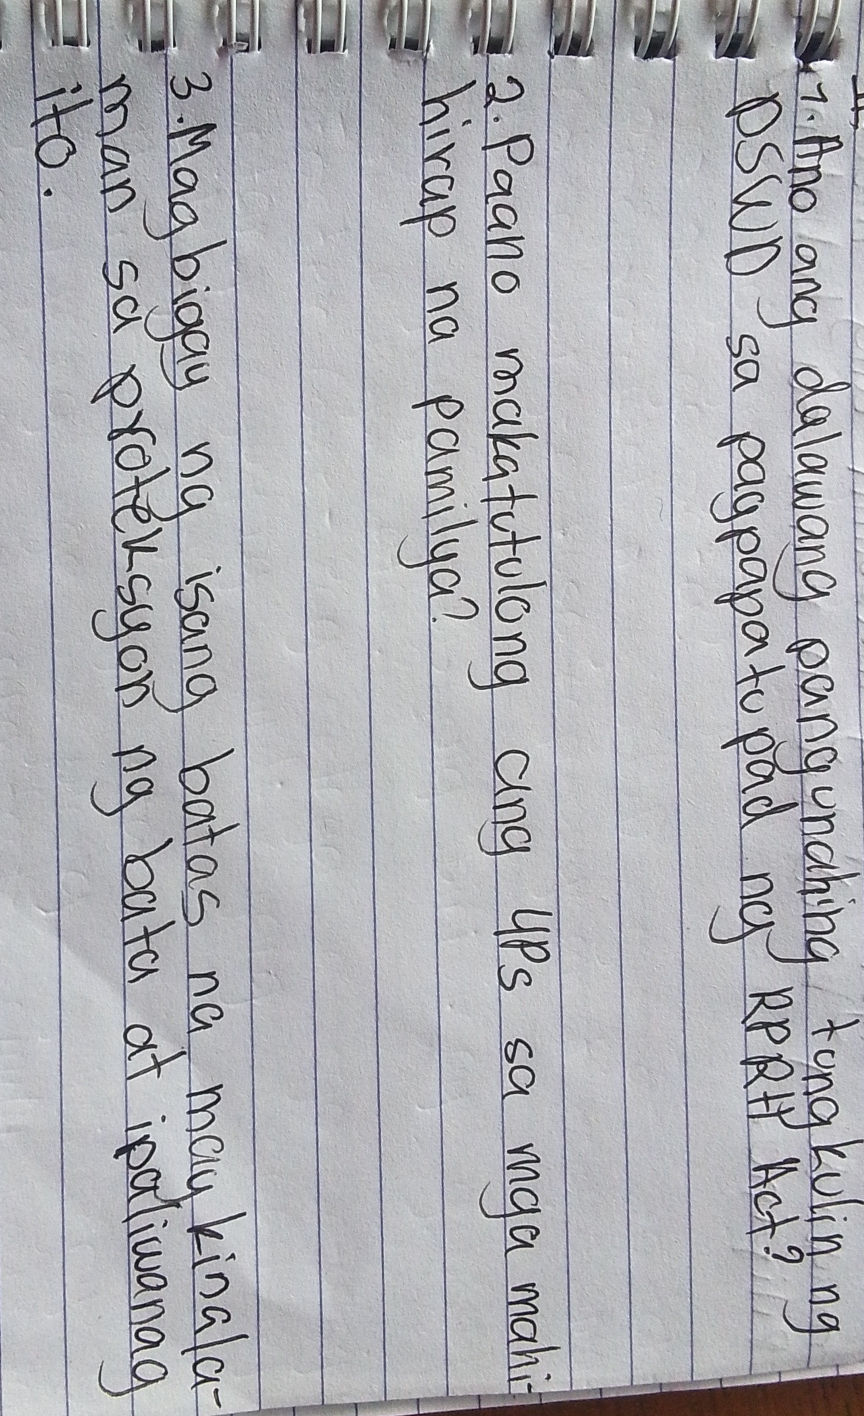 1. Ano ang dalawang pangunahing tungkulin ng
DSWD sa pagpapatupad ng RPRH Act?
2. Paano makatutulong ang 4Ps sa mga mahi-
hirap na pamilya?
3. Magbigay ng isang batas na may kinala-
man sa proteksyon ng bata at ipaliwanag
ito.